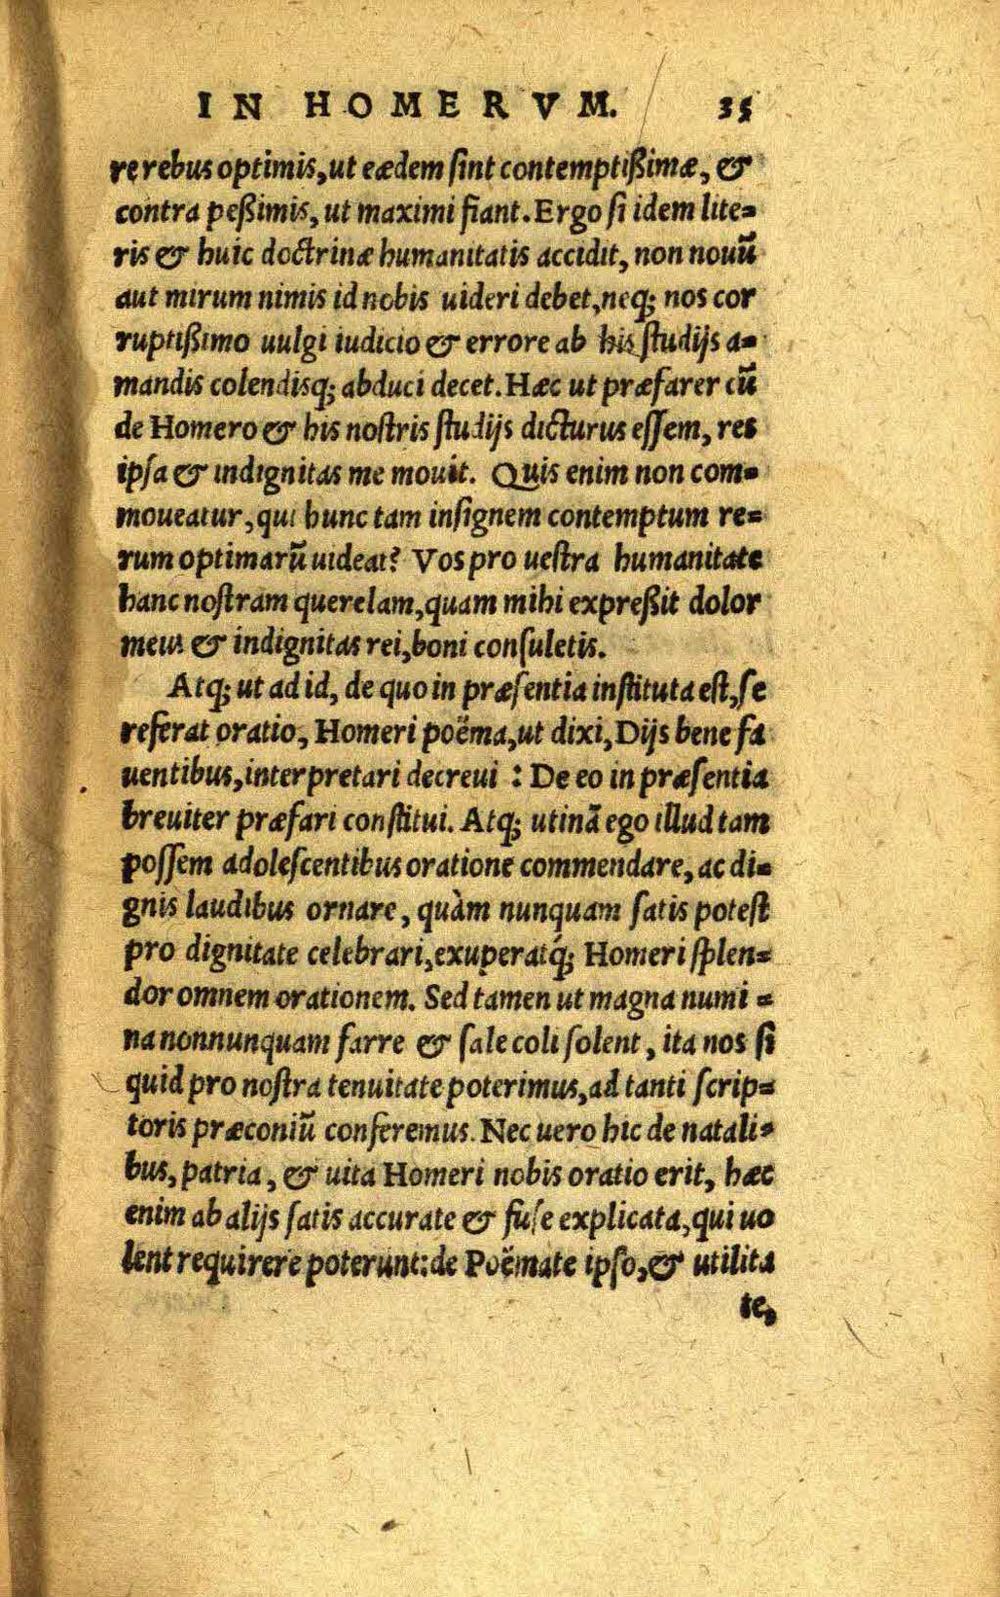 IN HOMERVM. 35
re rebus optimis, ut eædem sint contemptißimæ, &
contra peßimis, ut maximi fiant. Ergo si idem lite=
ris & huic doctrinæ humanitatis accidit, non nouũ
aut mirum nimis id nobis uideri debet, neq; nos cor
ruptißimo uulgi iudicio & errore ab his studijs a=
mandis colendisq; abduci decet. Hæc ut præfarer cũ
de Homero & his nostris studijs dicturus essem, res
ipsa & indignitas me mouit. Quis enim non com=
moueatur, qui hunc tam insignem contemptum re=
rum optimarũ uideat? Vos pro uestra humanitate
hanc nostram querelam, quam mihi expreßit dolor
meus & indignitas rei, boni consuletis.
Atq; ut ad id, de quo in præsentia instituta est, se
referat oratio, Homeri poëma, ut dixi, Dijs bene fa
uentibus, interpretari decreui : De eo in præsentia
breuiter præfari constitui. Atq; utinã ego illud tam
possem adolescentibus oratione commendare, ac di=
gnis laudibus ornare, quàm nunquam satis potest
pro dignitate celebrari, exuperatq́; Homeri splen=
dor omnem orationem. Sed tamen ut magna numi=
na nonnunquam farre & sale coli solent, ita nos si
quid pro nostra tenuitate poterimus, ad tanti scrip=
toris præconiũ conferemus. Nec uero hic de natali=
bus, patria, & uita Homeri nobis oratio erit, hæc
enim ab alijs satis accurate & fuse explicata, qui uo
lent requirere poterunt: de Poëmate ipso, & utilita
te,